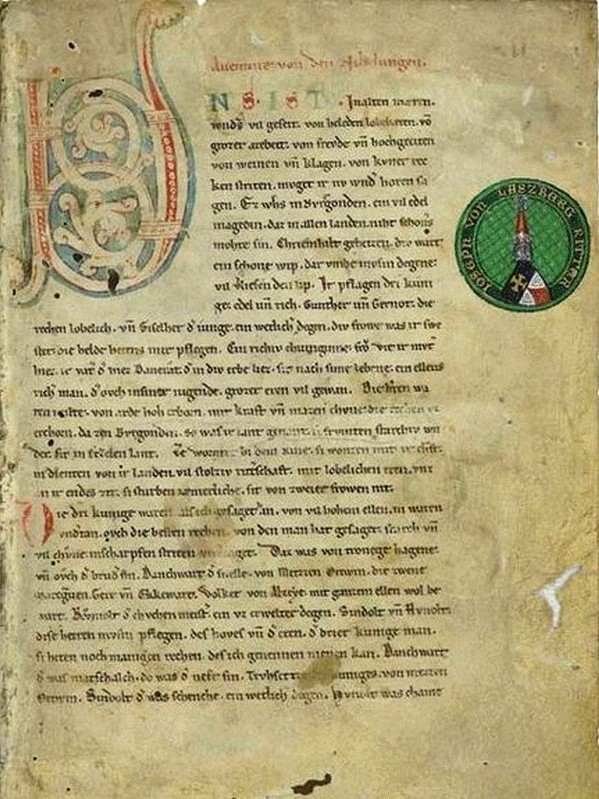 Auenture von den Nibelungen.
VNS·IST· In alten mæren.
wnders vil geseit. von heleden lobebæren. vō
grozer arebeit. von frevde vn̄ hochgeciten
von weinen vn̄ klagen. von kvner rec
ken striten. mvget ir nv wnd̾ horen sa
gen. Ez whs in Bvrgonden. ein vil edel
magedin. daz in allen landen. niht schoners
mohte sin. Chriemhilt geheizen. div wart
ein schone wip. dar vmbe mvsin degene
vil verliesen den lip. Ir pflagen dri kuni
ge. edel vn̄ rich. Gunther vn̄ Gernot. die
rechen lobelich. vn̄ Giselher d̾ iunge. ein wetlich̾ degen. div frowe was ir swe
ster. die helde heten s in ir pflegen. Ein richiv chuniginne. frŏ Vte ir mvt̾
hiez. ir vat̾ d̾ hiez Dancrat. d̾ in div erbe liez. sit nach sime lebene. ein ellens
rich̾ man. d̾ ovch in siner iugende. grozer eren vil gewan. Die h̾ren wa
ren milte. von arde hoh erborn. mit kraft vn̄ mazen chvne. die rechen
erchorn. da zen Bvrgonden. so was ir lant genant. si frvmten starchiv wn
der. sit in Etcelen lant. Ze Wormz bi dem Rine. si wonten mit ir chraft.
in dienten von ir landen. vil stolziv ritt̾schaft. mit lobelichen eren. vnz
an ir endes zit. si sturben iæmerliche. sit von zweier frowen nit.
Die dri kunige waren als ich gesaget han. von vil hohem ellen. in waren
vndertan. ovch die besten rechen. von den man hat gesaget. starch vn̄
vil chvne. in scharpfen striten unverzaget. Daz was von Tronege Hagene
vn̄ ovch d̾ brud̾ sin. Danchwart d̾ snelle. von Metzen Ortwin. die zwene
marcgraven. Gere vn̄ Ekkewart. Volker von Alzeye. mit ganzem ellen wol be
wart. Rvmolt d̾ chvchenmeist̾. ein vz erwelter degen. Sindolt vn̄ Hvnolt.
dise herren mvsin pflegen. des hoves vn̄ d̾ eren. d̾ drier kunige man.
si heten noch manigen rechen. des ich genennen nienen kan. Danchwart
d̾ was marschalch. do was d̾ neve sin. Trvhsetze des kuniges. von Metzen
Ortwin. Sindolt d̾ was schenche. ein wetlich degen. Hvnolt was cham
JOSEPH VON LASZBERG RITTER